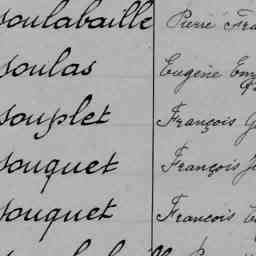 Soulabaille Pierre
Soulas Eugène
Souplet François
Souquet François
Souquet François